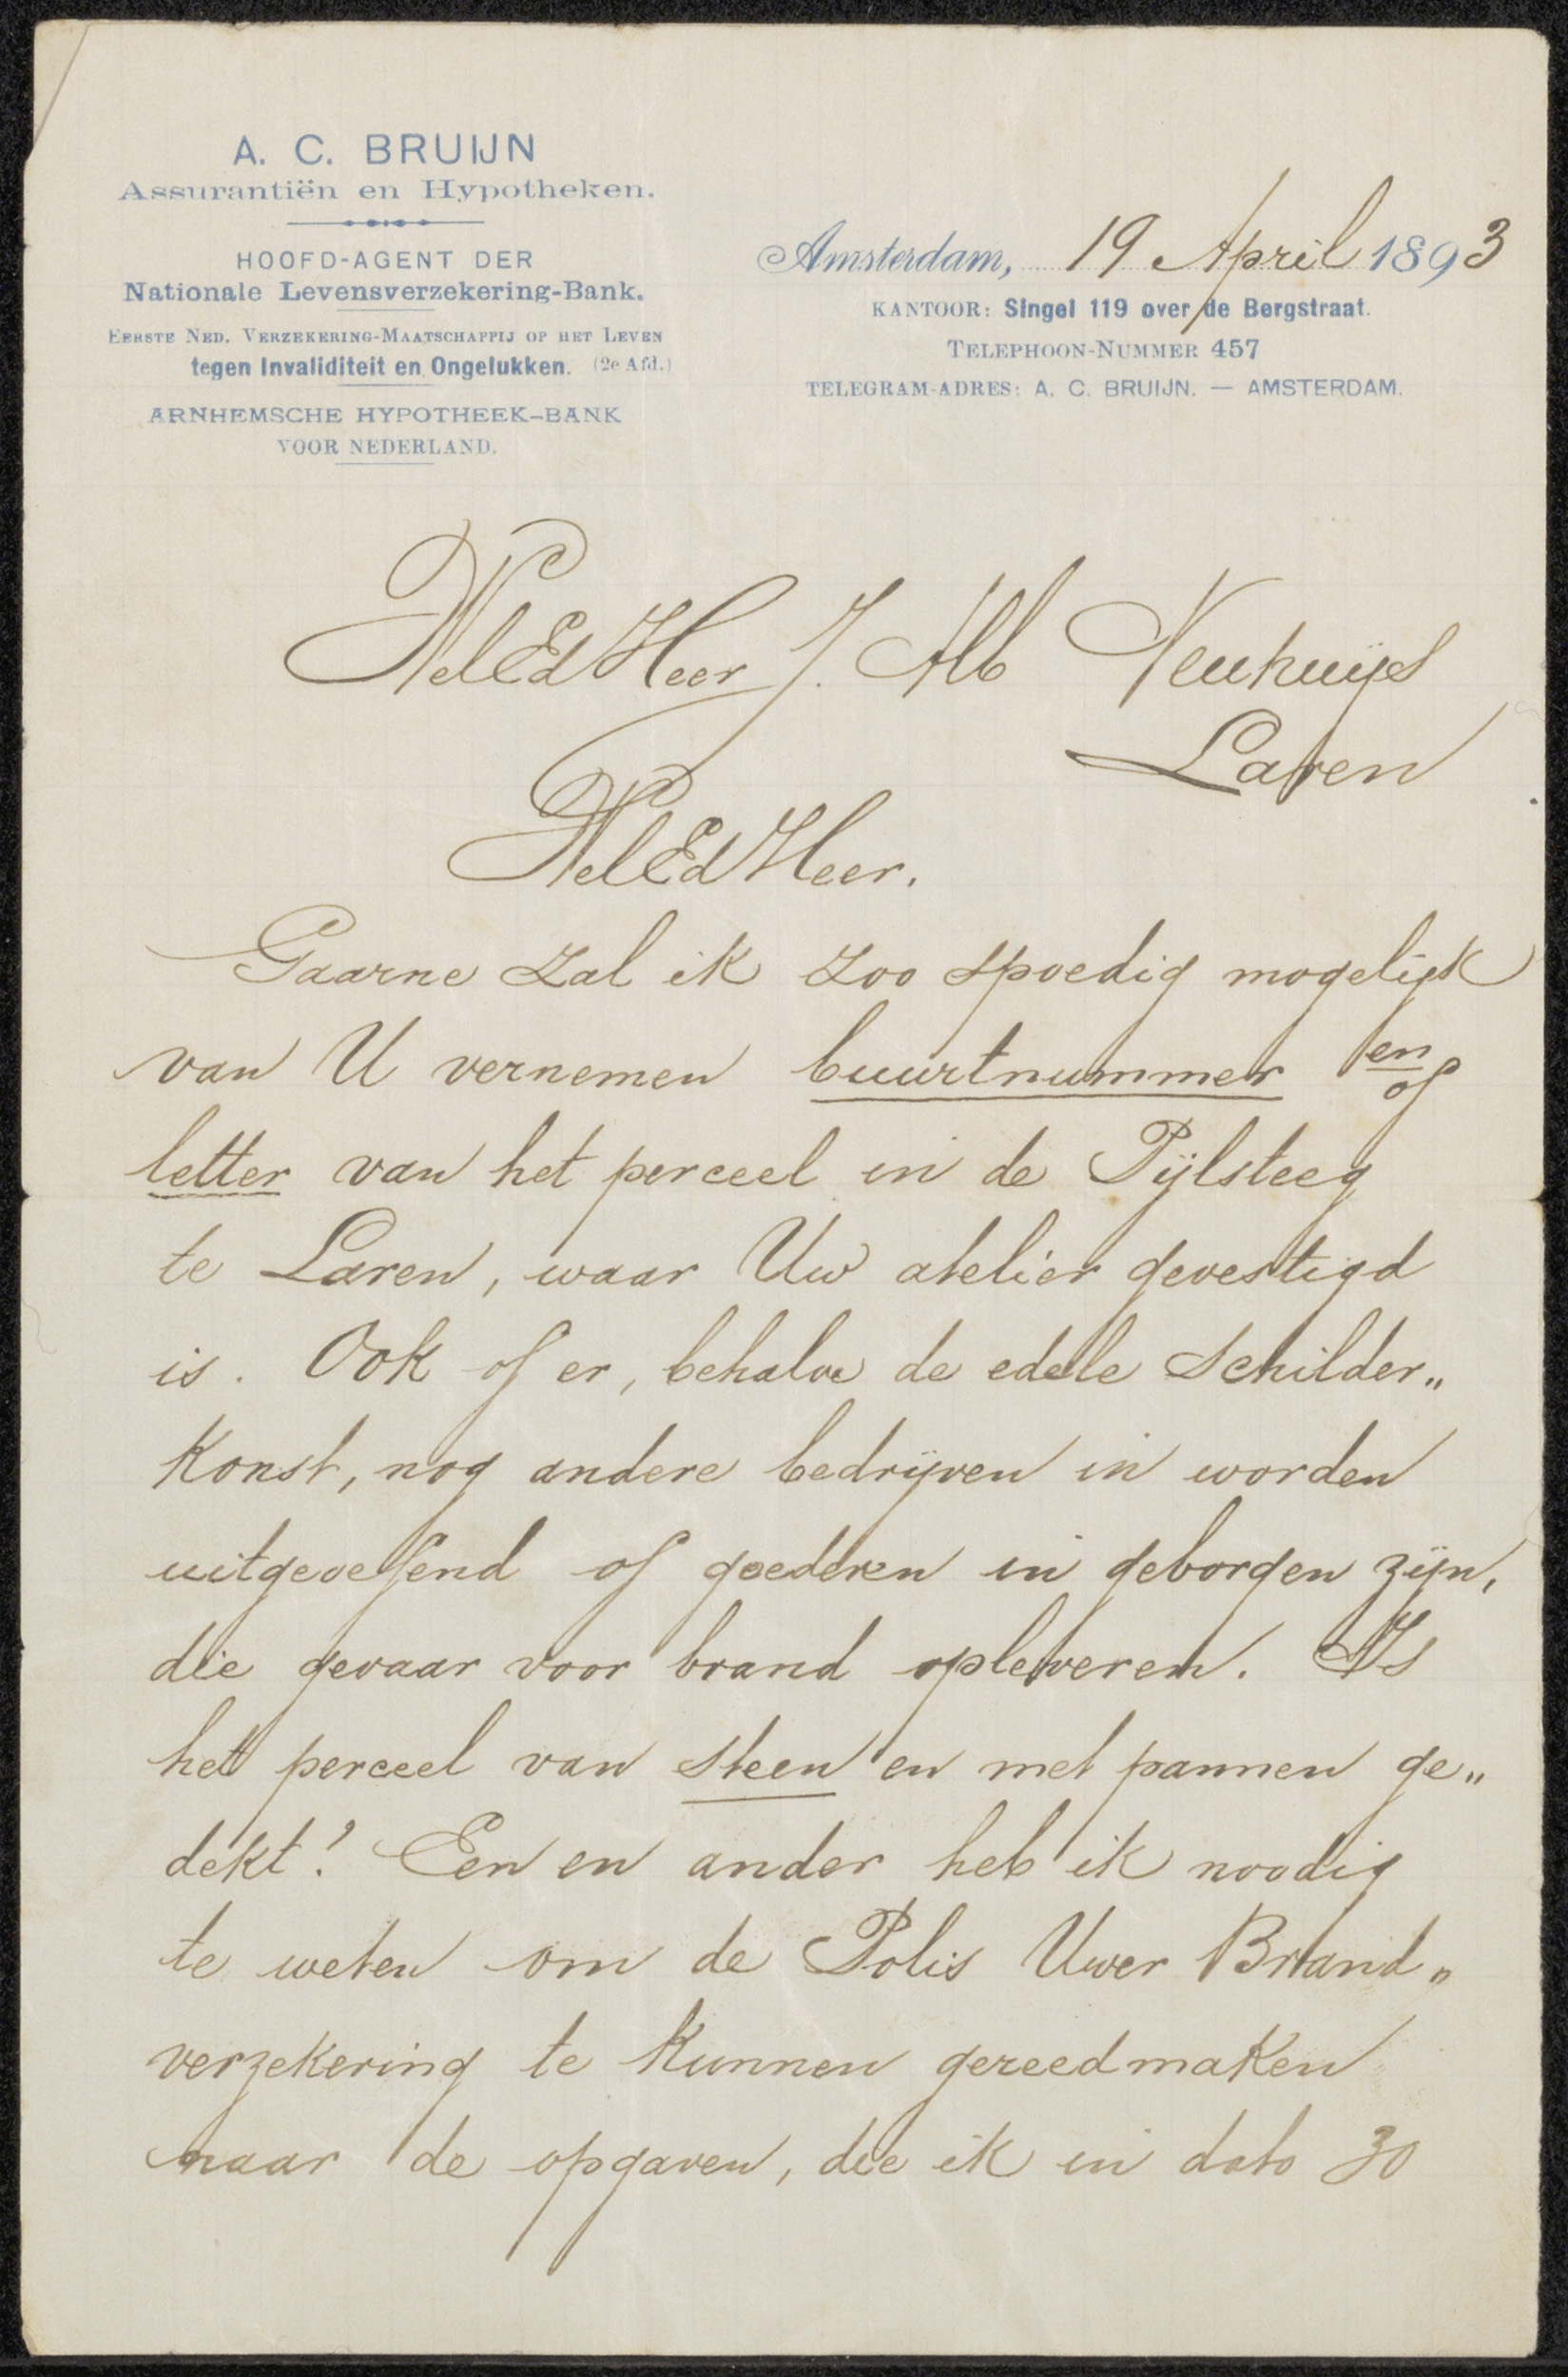 A. C. BRUIJN
Assurantiën en Hypotheken.
HOOFD-AGENT DER
Nationale Levensverzekering-Bank.
EERSTE NED. VERZEKERING-MAATSCHAPPIJ OP HET LEVEN
tegen Invaliditeit en Ongelukken. (2e Afd.)
ARNHEMSCHE HYPOTHEEK-BANK
VOOR NEDERLAND.
Amsterdam, 19 April 1893
KANTOOR: Singel 119 over de Bergstraat.
TELEPHOON-NUMMER 457
TELEGRAM-ADRES: A. C. BRUIJN. — AMSTERDAM.
WelEdHeer J. Alb Neuhuijs
Laren
WelEdHeer.
Gaarne zal ik zoo spoedig mogelijk
van U vernemen buurtnummer en/of
letter van het perceel in de Pijlsteeg
te Laren, waar Uw atelier gevestigd
is. Ook of er, behalve de edele Schilder„
konst, nog andere bedrijven in worden
uitgeoefend of goederen in geborgen zijn,
die gevaar voor brand opleveren. Is
het perceel van steen en met pannen ge„
dekt? Een en ander heb ik noodig
te weten om de Polis Uwer Brand„
verzekering te kunnen gereedmaken
naar de opgaven, die ik in dato 30